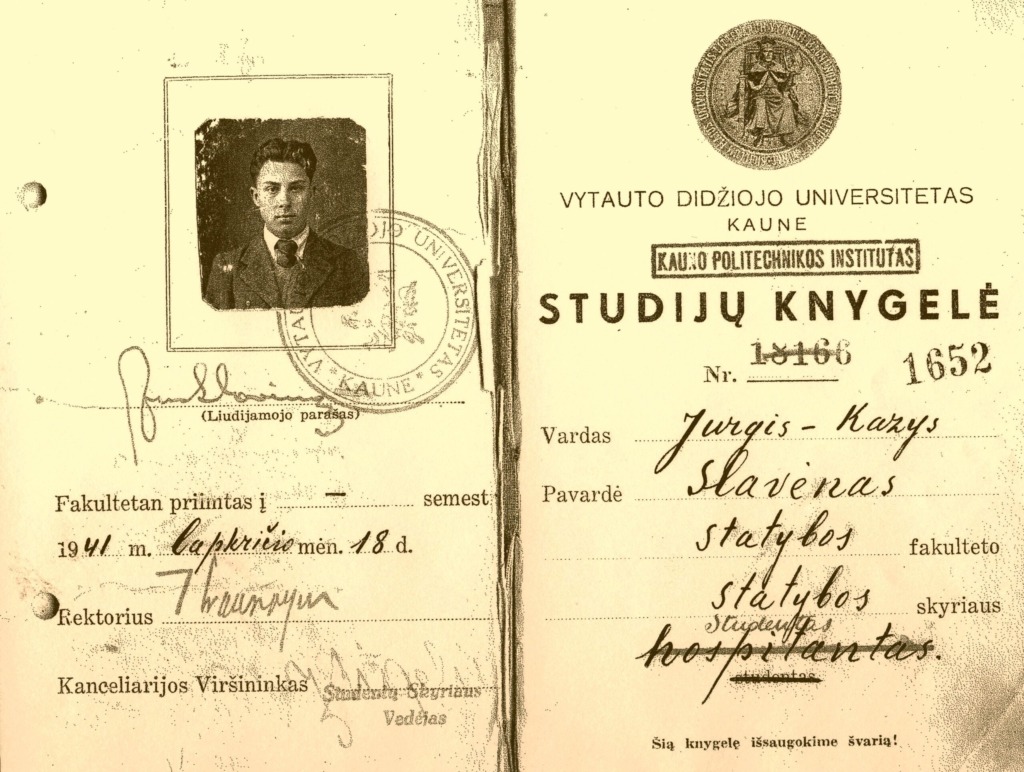 VYTAUTO DIDŽIOJO UNIVERSITETAS
* KAUNE *
(Liudijamojo parašas)
Fakultetan priimtas į – semest
1941 m. lapkričio mėn. 18 d.
Rektorius
Kanceliarijos Viršininkas
Studentų Skyriaus
Vedėjas
VYTAUTO DIDŽIOJO UNIVERSITETAS
KAUNE
KAUNO POLITECHNIKOS INSTITUTAS
STUDIJŲ KNYGELĖ
Nr. 18166 1652
Vardas Jurgis - Kazys
Pavardė Slavėnas
statybos fakulteto
statybos skyriaus
Studentas
hospitantas.
studentas
Šią knygelę išsaugokime švarią!